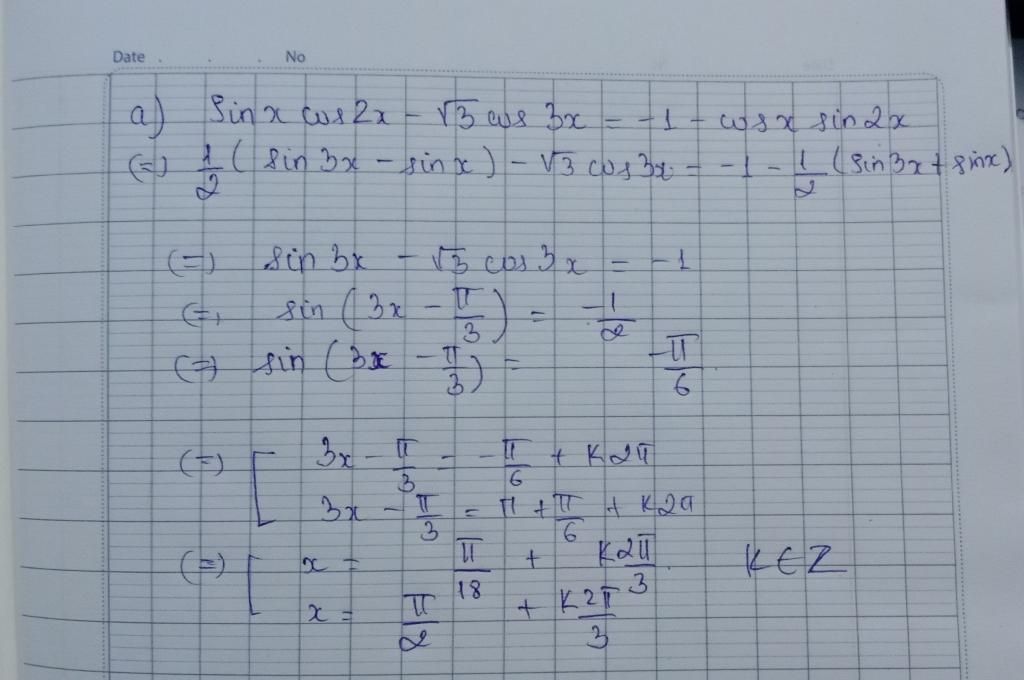 Date . . . No
a) sin x cos 2x - √3 cos 3x = -1 - cos x sin 2x
(=) 1/2 ( sin 3x - sin x ) - √3 cos 3x = -1 - 1/2 (sin 3x + sin x)
(=) sin 3x - √3 cos 3x = -1
(=, sin ( 3x - π/3 ) = -1/2
(=) sin ( 3x - π/3 ) = -π/6
(=) [ 3x - π/3 = - π/6 + K2π
3x - π/3 = π + π/6 + K2π
(=) [ x = π/18 + K2π/3 . K ∈ Z
x = π/2 + K2π/3